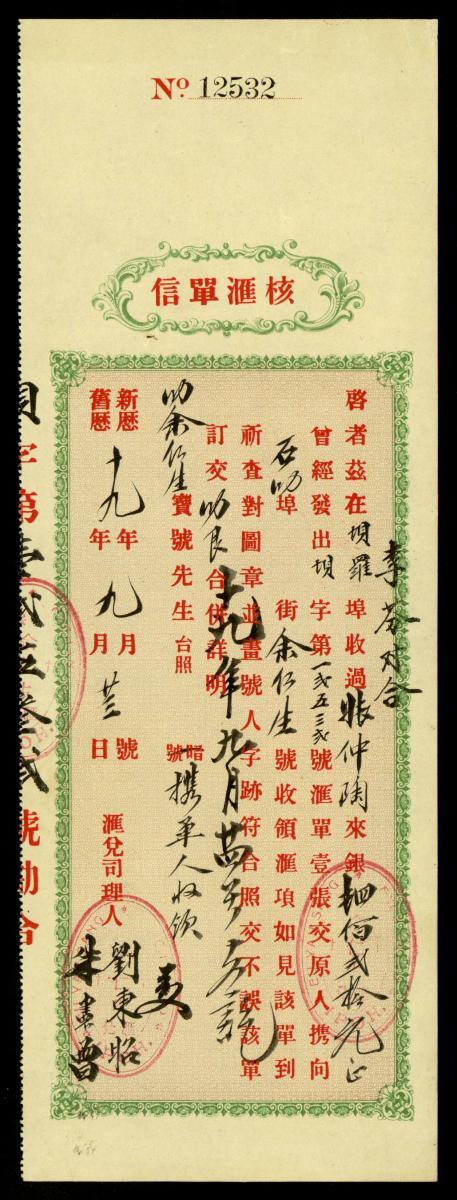 No. 12532
核滙單信
李芬對合
啓者茲在垻羅埠收過張仲陶來銀肆佰弍拾元正
曾經發出垻字第一弍五三弍號滙單壹張交原人携向
石叻埠街余仁生號收領滙項如見該單到
祈查對圖章並畫號人字跡符合照交不誤該單
訂交叻良合併詳明
十九年九月廿
叻余仁生寶號先生台照
暗號一携單人收領
新歷 十九年九月 號
舊歷 年 月廿三日
滙兌司理人 劉東昭
字第壹弍五叁弍號勘合